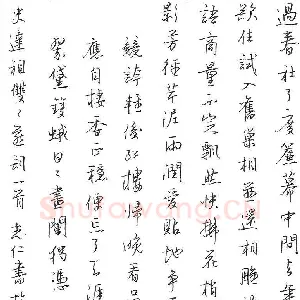 過春社了度簾幕中間去
欲住試入舊巢相並還相雕
語商量不定飄然快拂花梢
影芳徑芹泥雨潤愛貼地爭
競誇輕俊紅樓歸晚看
應自棲香正穩便忘了天涯
翠黛雙蛾日日畫闌獨憑
史達祖雙雙燕詞一首